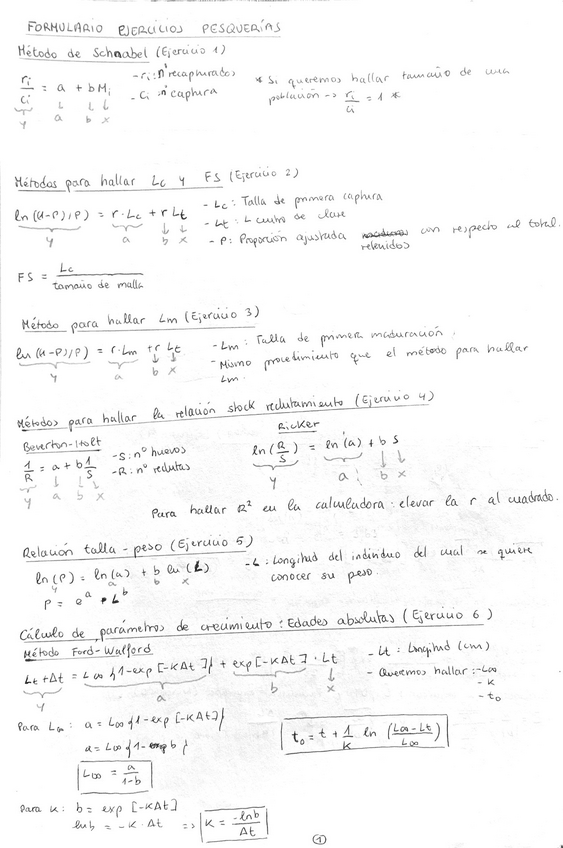 FORMULARIO EJERCICIOS PESQUERÍAS
Método de Schnabel (Ejercicio 1)
ri/ci = a + b Mi
y a b x
- ri: nº recapturados
- Ci nº captura
* Si queremos hallar tamaño de una
población -> ri/ci = 1 *
Métodos para hallar Lc y FS (Ejercicio 2)
ln (1-P)/P) = r·Lc + r Lt
y a b x
- Lc: Talla de primera captura
- Lt: L centro de clase
- P: Proporción ajustada retenidos con respecto al total.
FS = Lc / tamaño de malla
Método para hallar Lm (Ejercicio 3)
ln (1-P)/P) = r·Lm + r Lt
y a b x
- Lm: Talla de primera maduración.
- Mismo procedimiento que el método para hallar
Lm.
Métodos para hallar la relación stock reclutamiento (Ejercicio 4)
Beverton-Holt
1/R = a + b 1/S
y a b x
- S: nº huevos
- R: nº reclutas
Ricker
ln (R/S) = ln (a) + b S
y a b x
Para hallar R² en la calculadora: elevar la r al cuadrado.
Relación talla - peso (Ejercicio 5)
ln (P) = ln (a) + b ln (L)
y a b x
P = e^a * L^b
- L: Longitud del individuo del cual se quiere
conocer su peso.
Cálculo de parámetros de crecimiento: Edades absolutas (Ejercicio 6)
Método Ford-Walford
Lt+Δt = L∞ {1-exp [-KΔt]} + exp [-KΔt] · Lt
y a b x
- Lt: Longitud (cm)
- Queremos hallar: - L∞
- K
- t0
Para L∞: a = L∞ {1-exp [-KΔt]}
a = L∞ {1-b}
L∞ = a / 1-b
t0 = t + 1/K ln (L∞-Lt / L∞)
Para K: b = exp [-KΔt]
ln b = -K·Δt => K = -lnb / Δt
1